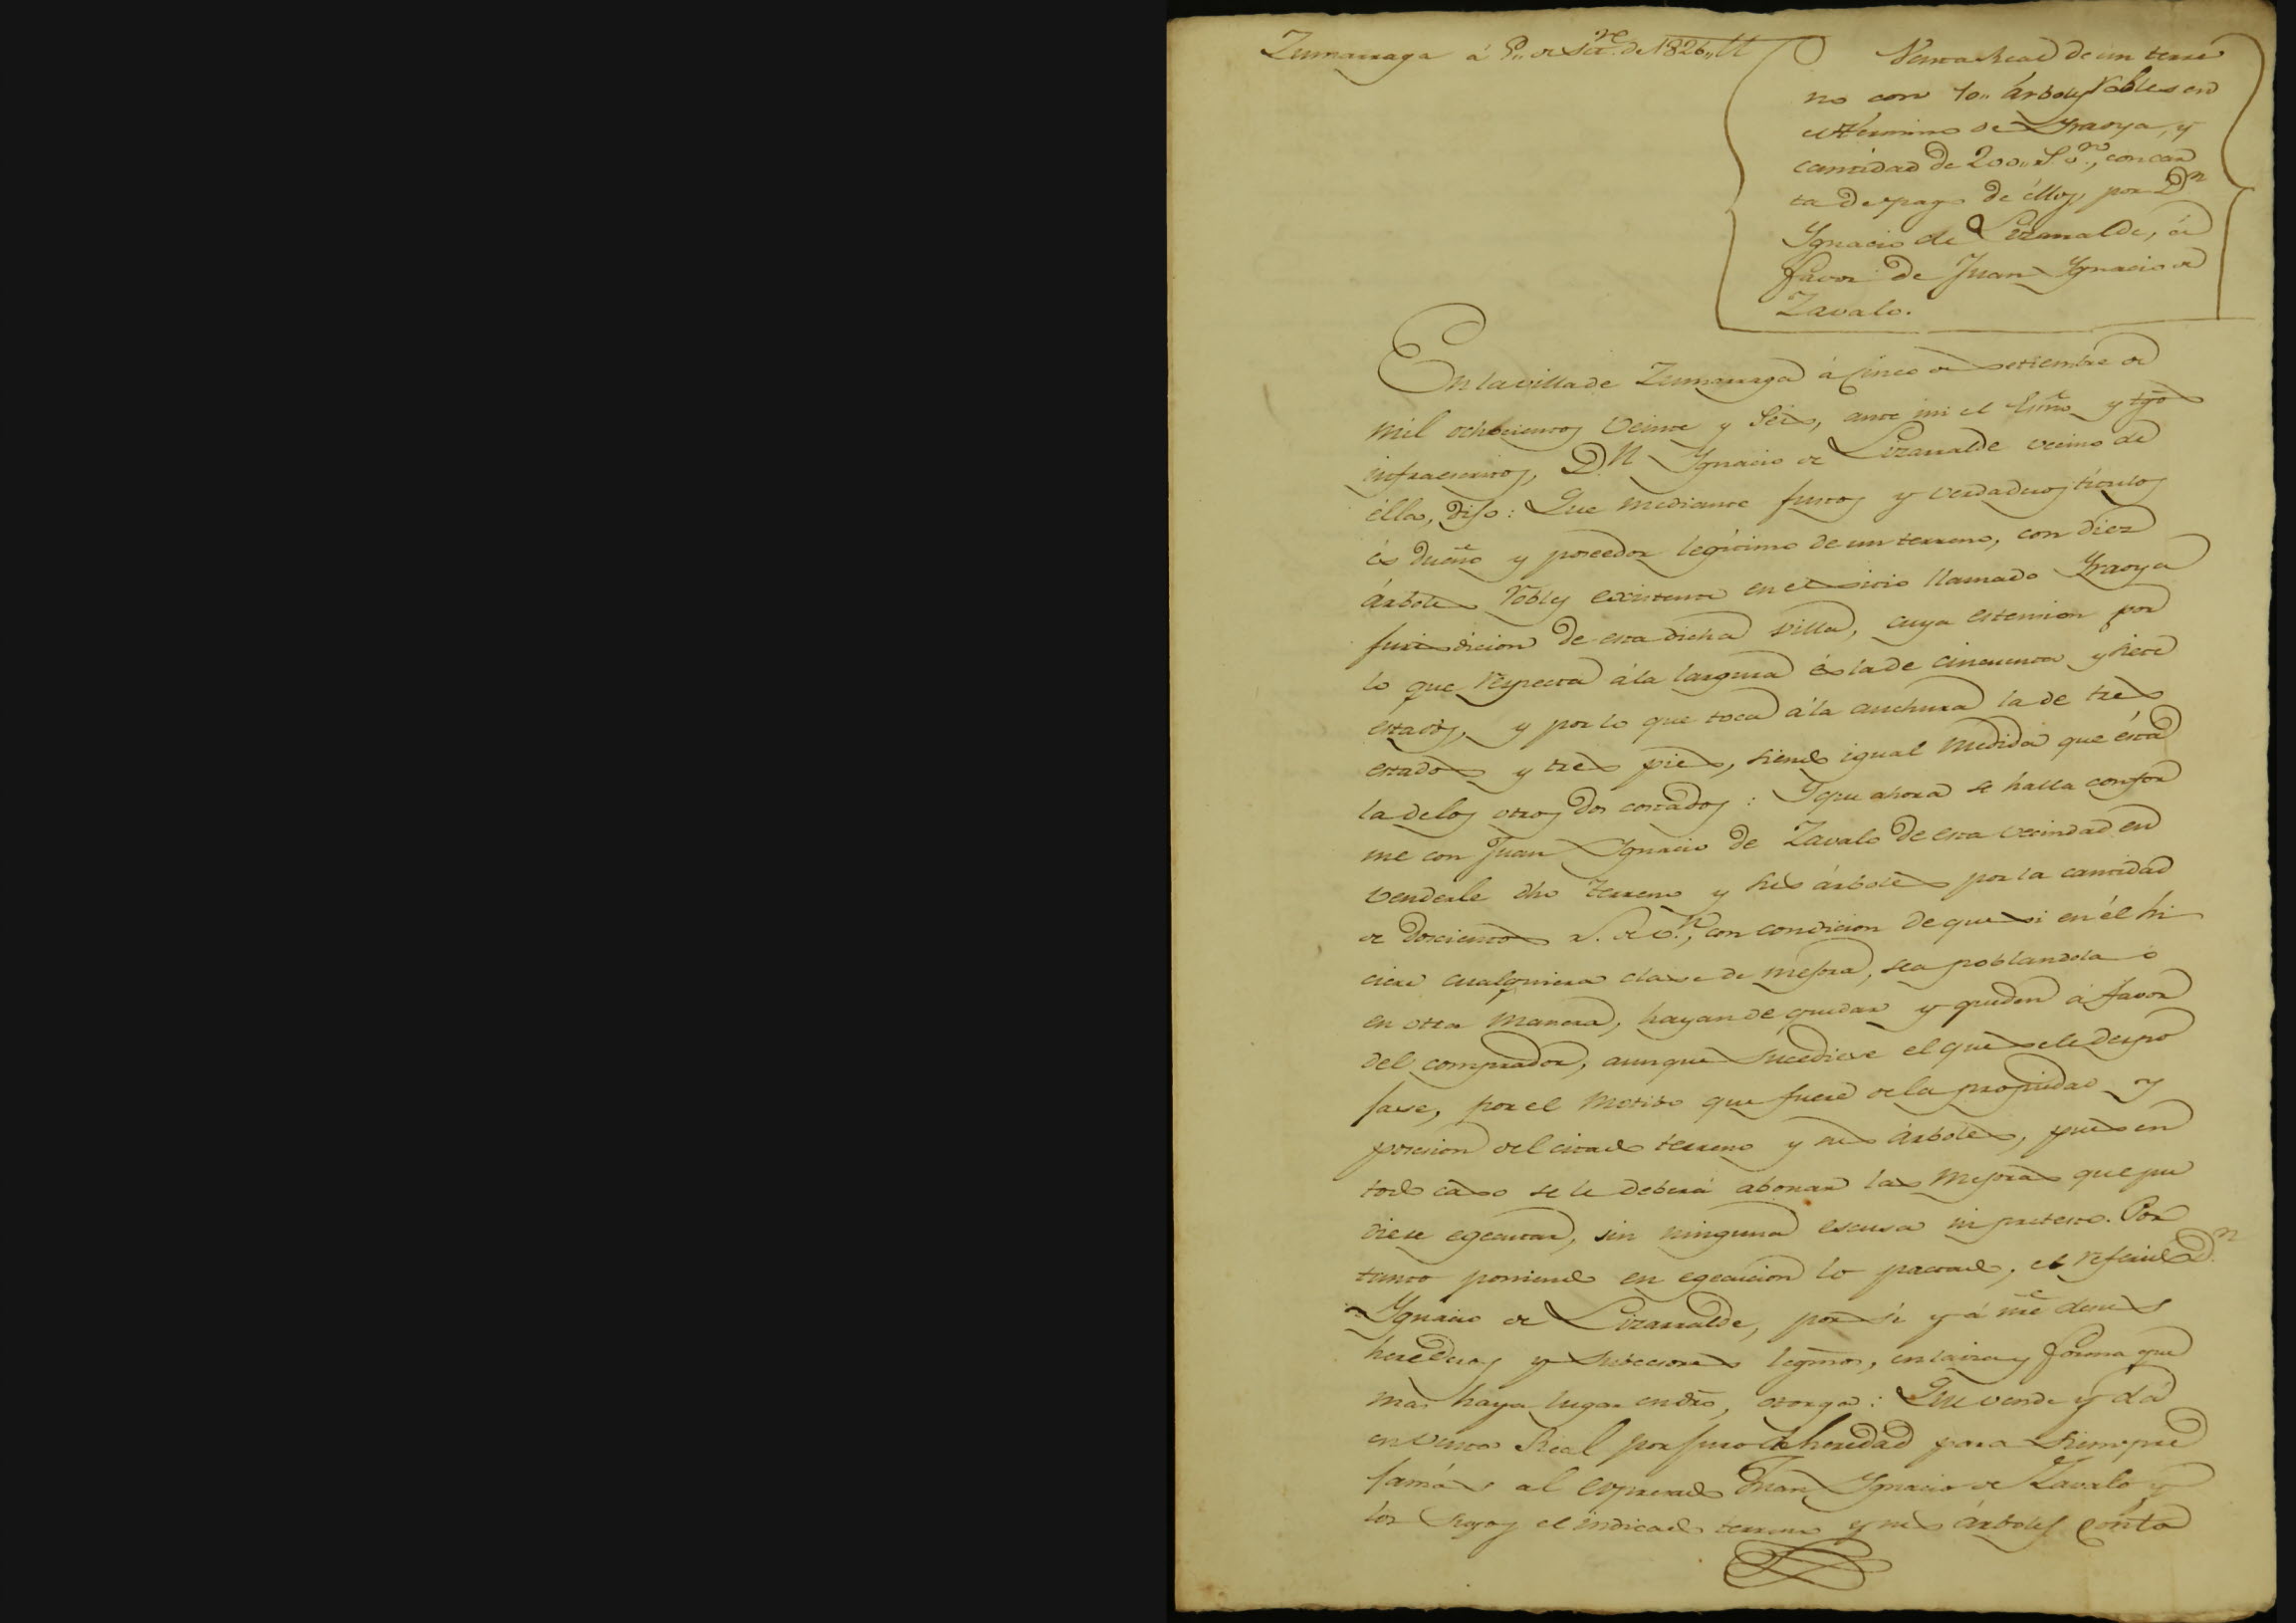 Zumarraga á 5,, de Set.re de 1826,,
Venta Real de un terre
no con 10,, árboles robles en
el término de Yraoya, y
cantidad de 200,, r.s v.n, con car
ta de pago de éllos, por D.n
Ygnacio de Lizarralde, á
favor de Juan Ygnacio de
Zavalo.
En la villa de Zumarraga á cinco de setiembre de
mil ochocientos veinte y seis, ante mi el Essno y tgos
infraescritos, D.n Ygnacio de Lizarralde vecino de
élla, dijo: Que mediante justos y verdaderos títulos
és dueño y poseedor legítimo de un terreno, con diez
árboles robles existente en el sitio llamado Yraoya
jurisdicion de esta dicha villa, cuya estension por
lo que respecta á la largura és la de cincuenta y siete
estados, y por lo que toca á la anchura la de tres
estados y tres pies, siendo igual medida que ésta
la de los otros dos costados: Y que ahora se halla confor
me con Juan Ygnacio de Zavalo de esta vecindad en
venderle dho terreno y sus árboles por la cantidad
de doscientos r.s de v.n, con condicion de que si en él hi
ciere cualquiera clase de mejora, sea poblandola ó
en otra manera, hayan de quedar y queden á favor
del comprador, aunque sucediese el que se le despo
jase, por el motivo que fuere de la propiedad y
posesion del citado terreno y sus árboles, pues en
todo caso se le deberá abonar las mejoras que pu
diese egecutar, sin ninguna escusa ni pretesto. Por
tanto poniendo en egecucion lo pactado, el referido D.n
Ygnacio de Lizarralde, por sí y á nre de sus
herederos y subcesores legmos, en la via y forma que
mas haya lugar en dro, otorga: Que vende y dá
en venta Real por juro de heredad para siempre
jamás al espresado Juan Ygnacio de Zavalo y
los suyos el indicado terreno y sus árboles con la